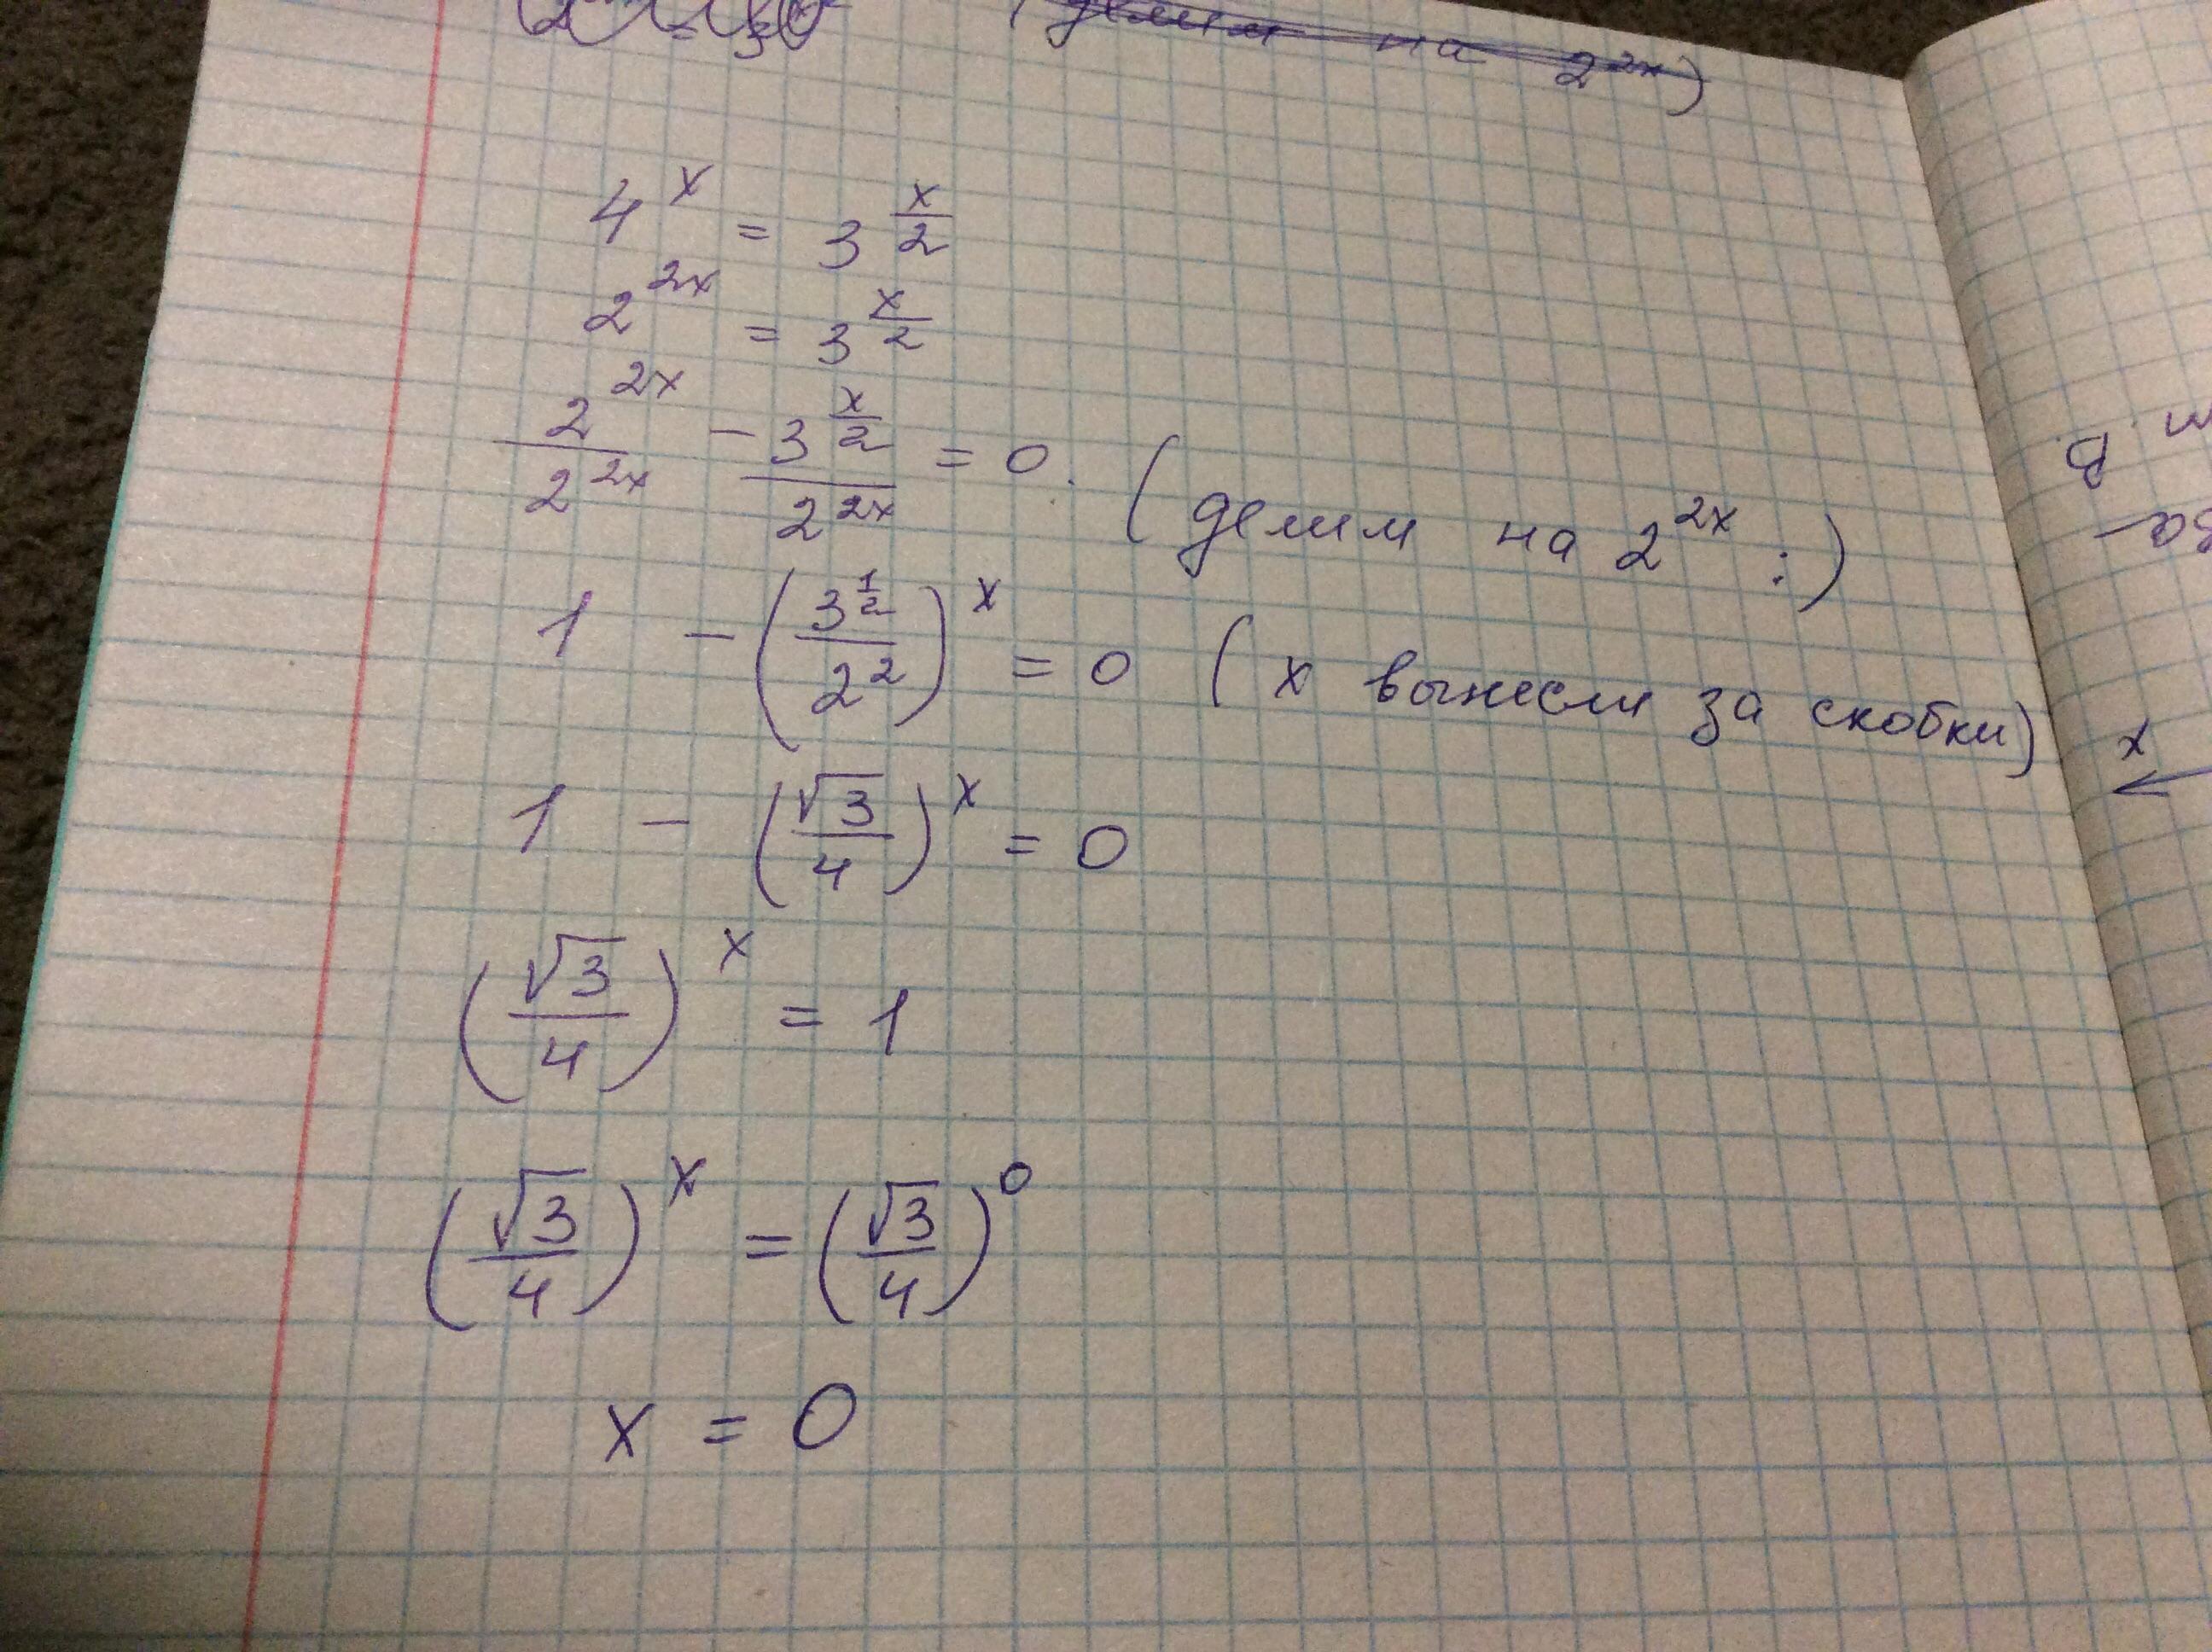 (делим на 2^2x)
4^x = 3^(x/2)
2^2x = 3^(x/2)
2^2x/2^2x - 3^(x/2)/2^2x = 0. (делим на 2^2x :)
1 - (3^(1/2)/2^2)^x = 0 (x вынесли за скобки)
1 - (√3/4)^x = 0
(√3/4)^x = 1
(√3/4)^x = (√3/4)^0
x = 0
x